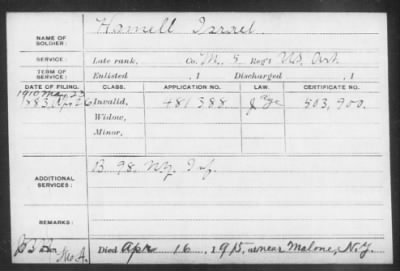 NAME OF SOLDIER: Hamell Israel
SERVICE: Late rank, Co. M, 5 Reg't U.S. Art.
TERM OF SERVICE: Enlisted , 1 Discharged , 1
DATE OF FILING. CLASS. APPLICATION NO. LAW. CERTIFICATE NO.
1910 May 23
1883, Apr 26 Invalid, 481388 503,900.
Widow,
Minor,
ADDITIONAL SERVICES: B. 98. N.Y. Inf.
REMARKS:
Died Apr 16, 1915, near Malone, N.Y.